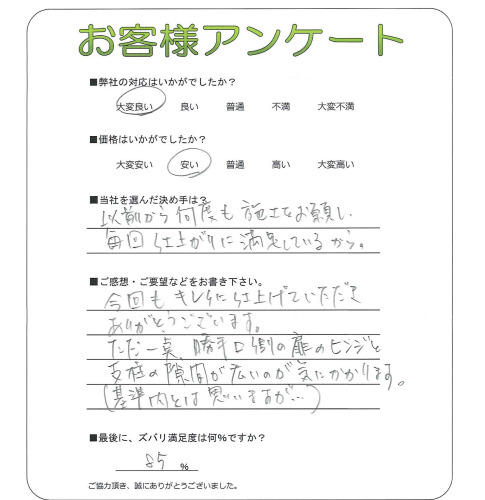 お客様アンケート
■弊社の対応はいかがでしたか？
大変良い 良い 普通 不満 大変不満
■価格はいかがでしたか？
大変安い 安い 普通 高い 大変高い
■当社を選んだ決め手は？
以前から何度も施工をお願いし、
毎回仕上がりに満足しているから。
■ご感想・ご要望などをお書き下さい。
今回もキレイに仕上げていただき
ありがとうございます。
ただ一点、勝手口側の扉のヒンジと
支柱の隙間が広いのが気にかかります。
(基準内とは思いますが…)
■最後に、ズバリ満足度は何％ですか？
85 ％
ご協力頂き、誠にありがとうございました。